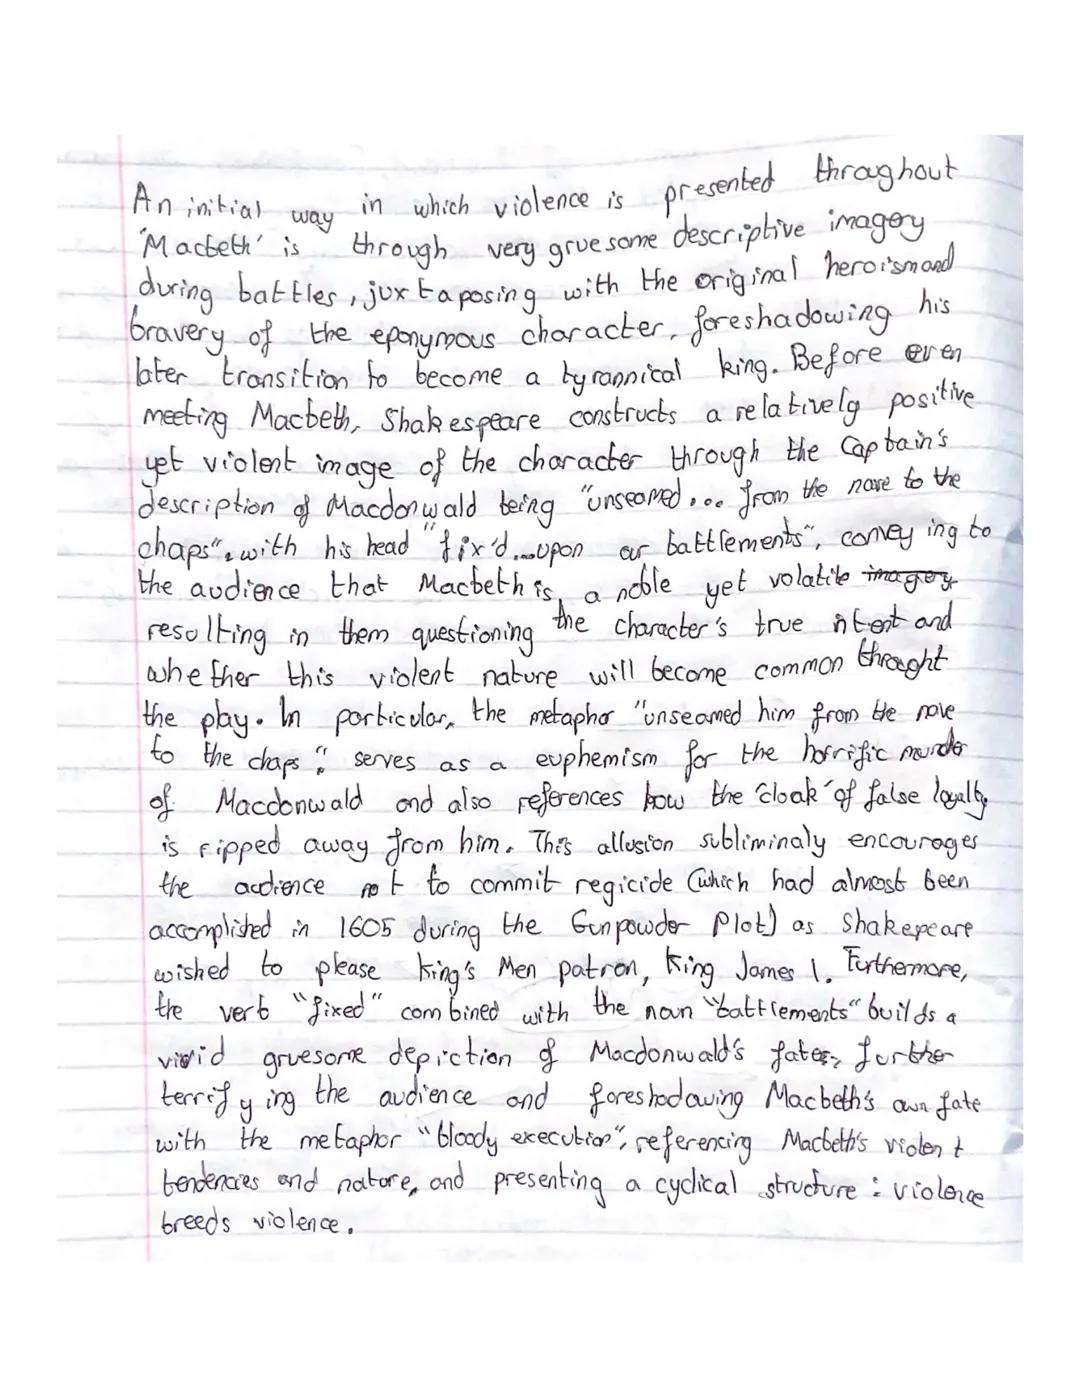 An initial way in which violence is presented throughout
'Macbeth' is through very gruesome descriptive imagery
during battles, juxtaposing with the original heroism and
bravery of the eponymous character, foreshadowing his
later transition to become a tyrannical king. Before even
meeting Macbeth, Shakespeare constructs a relatively positive
yet violent image of the character through the Captain's
description of Macdonwald being "unseamed... from the nave to the
chaps", with his head "fix'd...upon our battlements", conveying to
the audience that Macbeth is a noble yet volatile imagery
resulting in them questioning the character's true intent and
whether this violent nature will become common throught
the play. In particular, the metaphor "unseamed him from the nave
to the chaps" serves as a euphemism for the horrific murder
of Macdonwald and also references how the 'cloak' of false loyalty
is ripped away from him. This allusion subliminaly encourages
the audience not to commit regicide (which had almost been
accomplished in 1605 during the Gunpowder Plot) as Shakepeare
wished to please King's Men patron, King James 1. Furthermore,
the verb "fixed" combined with the noun "battlements" builds a
vivid gruesome depiction of Macdonwald's fate, further
terrifying the audience and foreshadowing Macbeth's own fate
with the metaphor "bloody execution", referencing Macbeth's violent
tendencies and nature, and presenting a cyclical structure : violence
breeds violence.